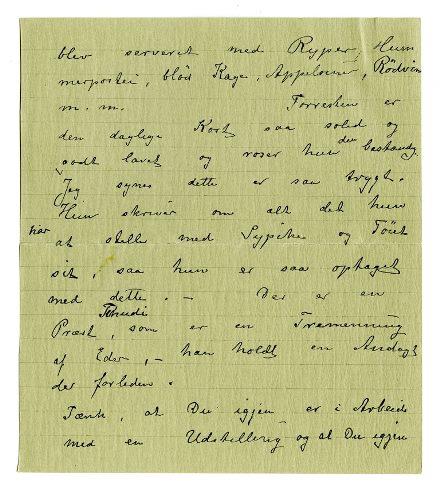 blev serveret med Ryper, Hum
merpostei, blød Kage, Appelsiner, Rödvin
m. m. Forresten er
den daglige Kost saa solid og
godt lavet og roser hun den bestandig.
Jeg synes dette er saa trygt.
Hun skriver om alt det hun
har
at stelle med Sypike og Töiet
sit, saa hun er saa optaget
med dette. – Der er en
Thudi
Præst, som er en Tremenning
af Eder, – han holdt en Andagt
der forleden.
Tænk, at Du igjen er i Arbeide
med en Udstilling og at Du igjen